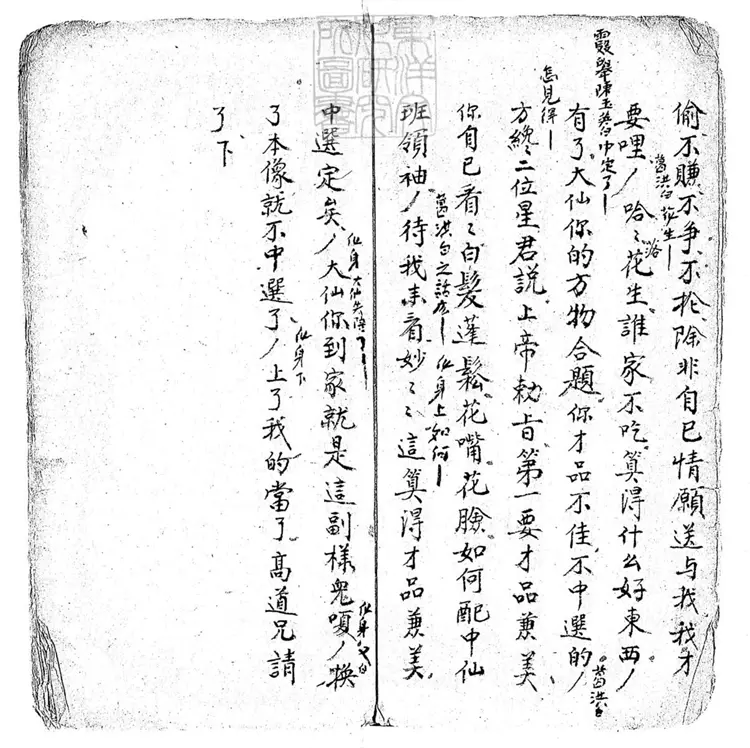 偷不賺不爭不搶除非自己情願送与我我才
要哩ノ哈〻花生誰家不吃算得什么好東西ノ
葛洪白花生
浴
霞舉陳玉英白中定了
有了大仙你的方物合題你才品不佳不中選的ノ
葛洪白
怎見得
方纔二位星君說上帝勅旨第一要才品兼美
你自己看〻白髮蓬鬆花嘴花臉如何配中仙
班領袖ノ待我來看妙〻〻這算得才品兼美
葛洪白之話介
化身上如何
中選定矣ノ大仙你到家就是這副樣鬼嗄ノ換
化身大仙失陪了
化身又白
了本像就不中選了ノ上了我的當了高道兄請
化身下
了下